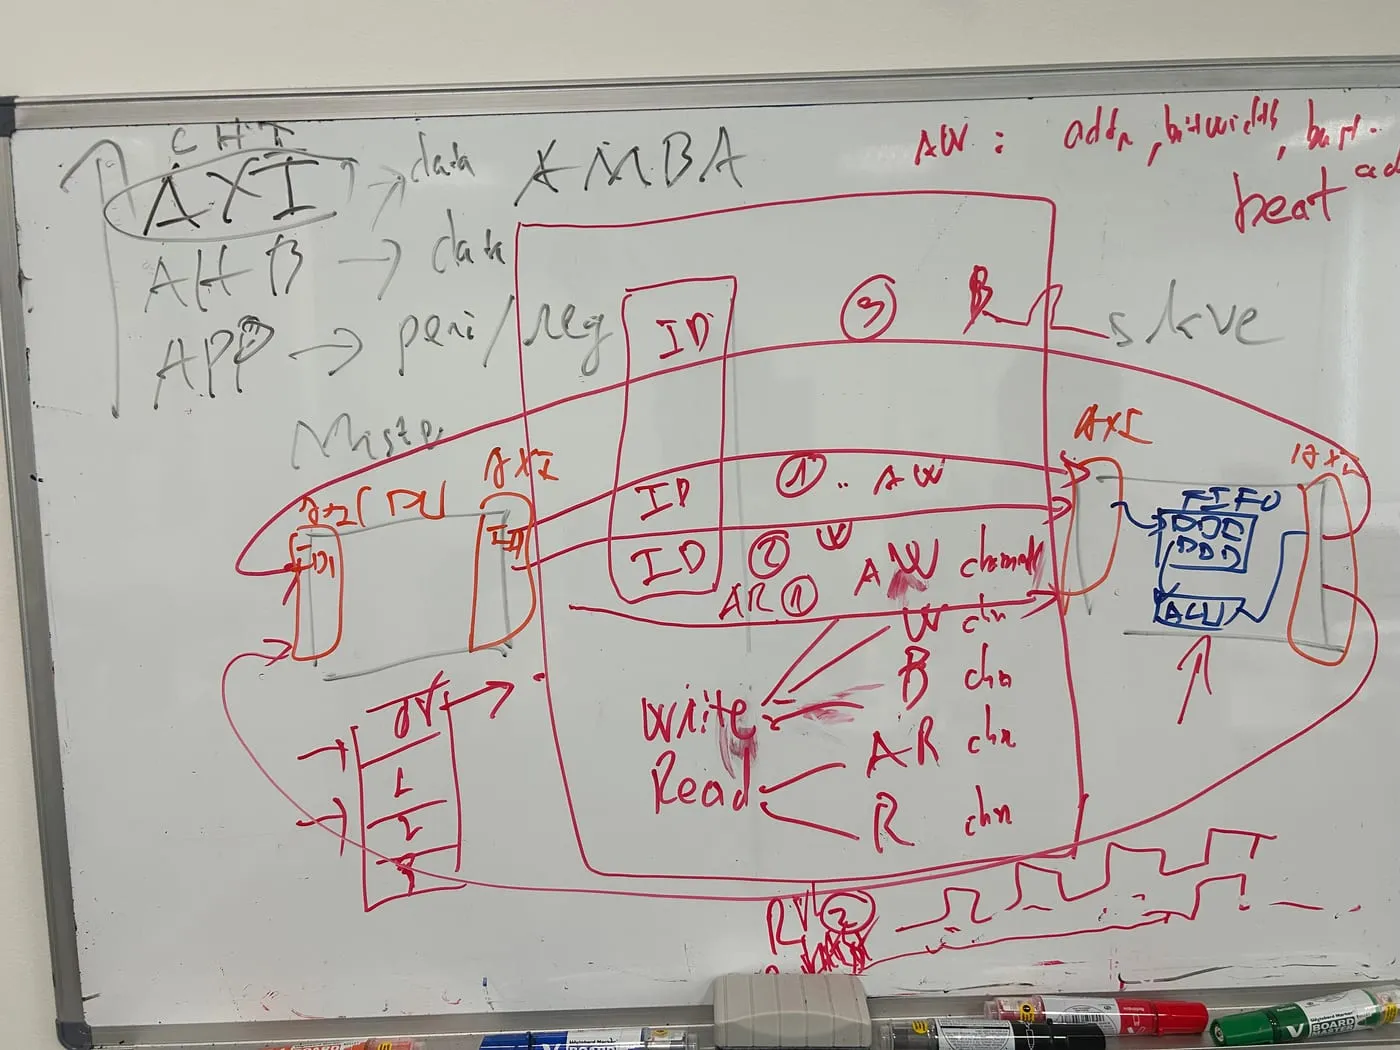 CHI
AXI → data
AMBA
AHB → data
APP → peri/reg
AW: addr, bitwidth, burst.
beat
B
slave
Master
ID
③
AXI
AXI
ID
① .. AW
ID
② W
AR ①
AW channel
W chn
B chn
AR chn
R chn
Write
Read
FIFO
DDD
DDD
ID
1
2
3
②
BOARD
MASTER